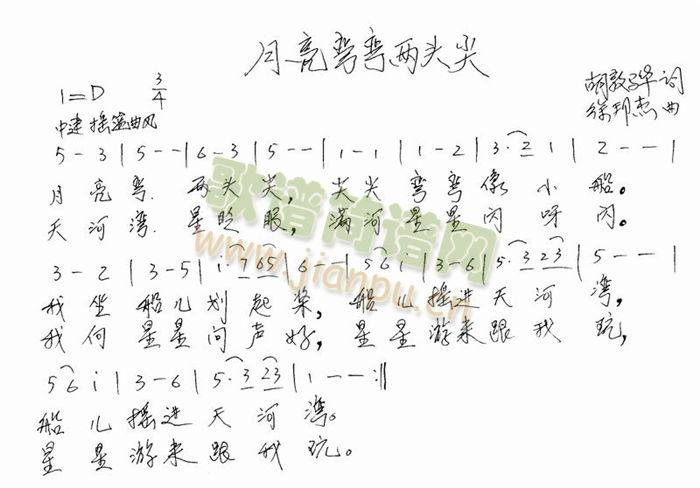 月亮弯弯两头尖
1=D 3/4
胡敦骅 词
中速 摇篮曲风
徐邦杰 曲
5 - 3 | 5 - - | 6 - 3 | 5 - - | 1 - 1 | 1 - 2 | 3 · 2 1 | 2 - - |
月 亮 弯. 两头尖, 尖尖 弯弯 像 小 船。
天 河 湾. 星眨眼, 满河 星星 闪 呀 闪。
歌谱简谱网
www.jianpu.cn
3 - 2 | 3 - 5 | 1 · 6 6 5 | 6 - - | 5 6 i | 3 - 6 | 5 · 3 2 3 | 5 - - |
我 坐 船 儿 划 起 桨, 船 儿 摇进 天 河 湾,
我 向 星 星 问 声 好, 星 星 游来 跟 我 玩,
5 6 i | 3 - 6 | 5 · 3 2 3 | 1 - - :||
船 儿 摇进 天 河 湾。
星 星 游来 跟 我 玩。